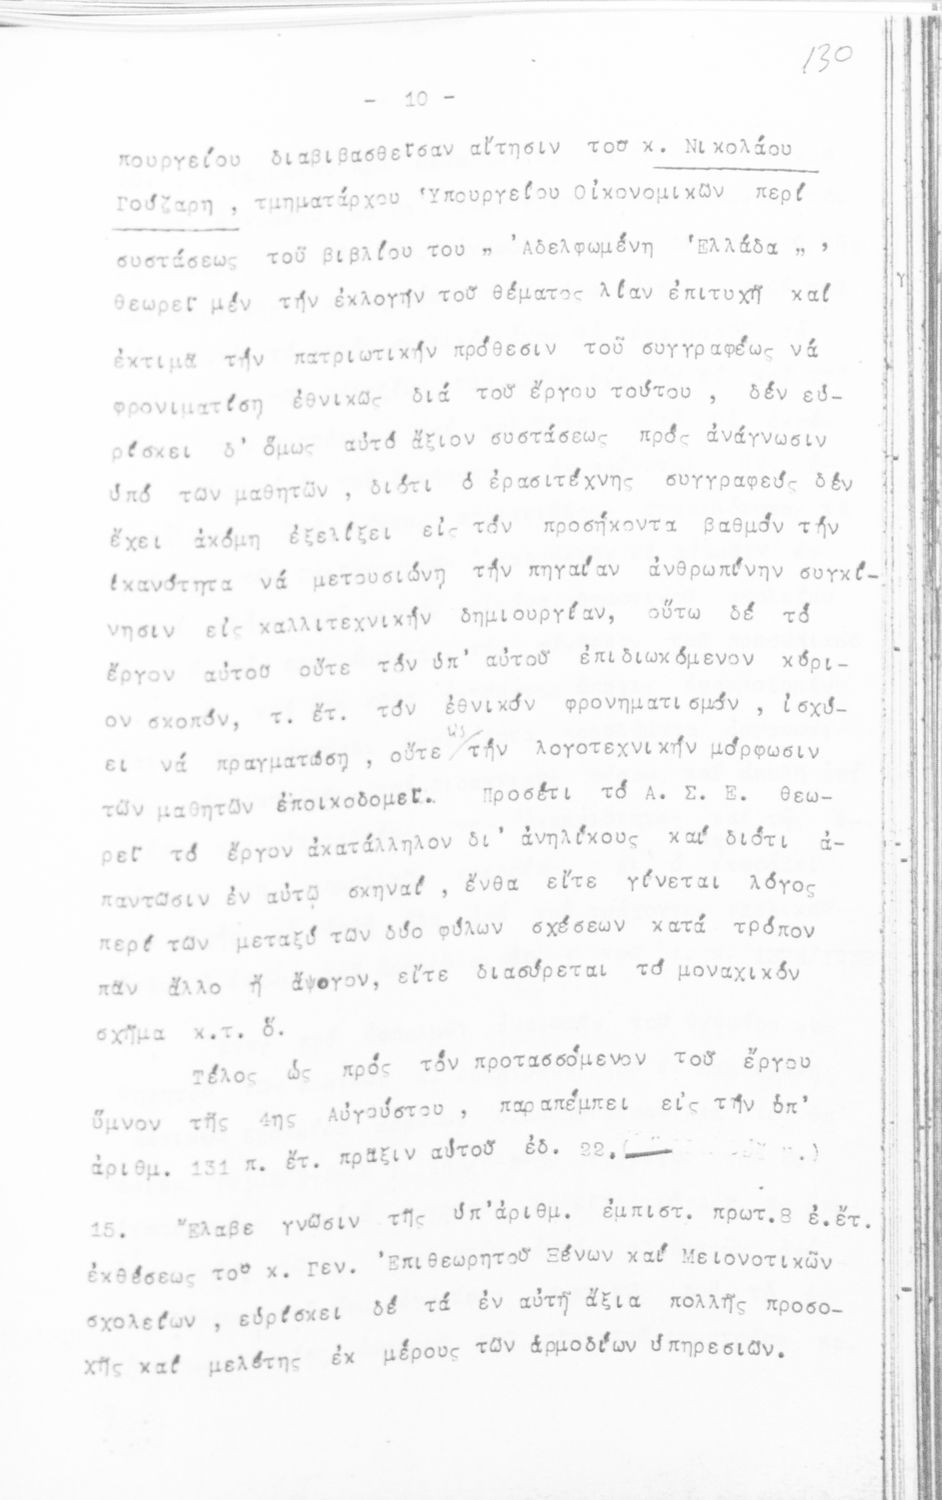 130
- 10 -
πουργείου διαβιβασθεῖσαν αἴτησιν τοῦ κ. Νικολάου
Γούζαρη , τμηματάρχου Ὑπουργείου Οἰκονομικῶν περί
συστάσεως τοῦ βιβλίου του „ Ἀδελφωμένη Ἑλλάδα „ ,
θεωρεῖ μέν τήν ἐκλογήν τοῦ θέματος λίαν ἐπιτυχῆ καί
ἐκτιμᾶ τήν πατριωτικήν πρόθεσιν τοῦ συγγραφέως νά
φρονιματίσῃ ἐθνικῶς διά τοῦ ἔργου τούτου , δέν εὑ-
ρίσκει δ' ὅμως αὐτό ἄξιον συστάσεως πρός ἀνάγνωσιν
ὑπό τῶν μαθητῶν , διότι ὁ ἐρασιτέχνης συγγραφεύς δέν
ἔχει ἀκόμη ἐξελίξει εἰς τόν προσήκοντα βαθμόν τήν
ἱκανότητα νά μετουσιώνῃ τήν πηγαίαν ἀνθρωπίνην συγκί-
νησιν εἰς καλλιτεχνικήν δημιουργίαν, οὕτω δέ τό
ἔργον αὐτοῦ οὔτε τόν ὑπ' αὐτοῦ ἐπιδιωκόμενον κύρι-
ον σκοπόν, τ. ἔτ. τόν ἐθνικόν φρονηματισμόν , ἰσχύ-
ει νά πραγματώσῃ , οὔτε τήν λογοτεχνικήν μόρφωσιν
τῶν μαθητῶν ἐποικοδομεῖ. Προσέτι τό Α. Σ. Ε. θεω-
ρεῖ τό ἔργον ἀκατάλληλον δι' ἀνηλίκους καί διότι ἀ-
παντῶσιν ἐν αὐτῷ σκηναί , ἔνθα εἴτε γίνεται λόγος
περί τῶν μεταξύ τῶν δύο φύλων σχέσεων κατά τρόπον
πᾶν ἄλλο ἤ ἄψογον, εἴτε διασύρεται τό μοναχικόν
σχῆμα κ.τ. ὅ.
Τέλος ὡς πρός τόν προτασσόμενον τοῦ ἔργου
ὕμνον τῆς 4ης Αὐγούστου , παραπέμπει εἰς τήν ὑπ'
ἀριθμ. 131 π. ἔτ. πρᾶξιν αὑτοῦ ἐδ. 22.
15. Ἔλαβε γνῶσιν τῆς ὑπ'ἀριθμ. ἐμπιστ. πρωτ.8 ἐ.ἔτ.
ἐκθέσεως τοῦ κ. Γεν. Ἐπιθεωρητοῦ Ξένων καί Μειονοτικῶν
σχολείων , εὑρίσκει δέ τά ἐν αὐτῇ ἄξια πολλῆς προσο-
χῆς καί μελέτης ἐκ μέρους τῶν ἁρμοδίων ὑπηρεσιῶν.